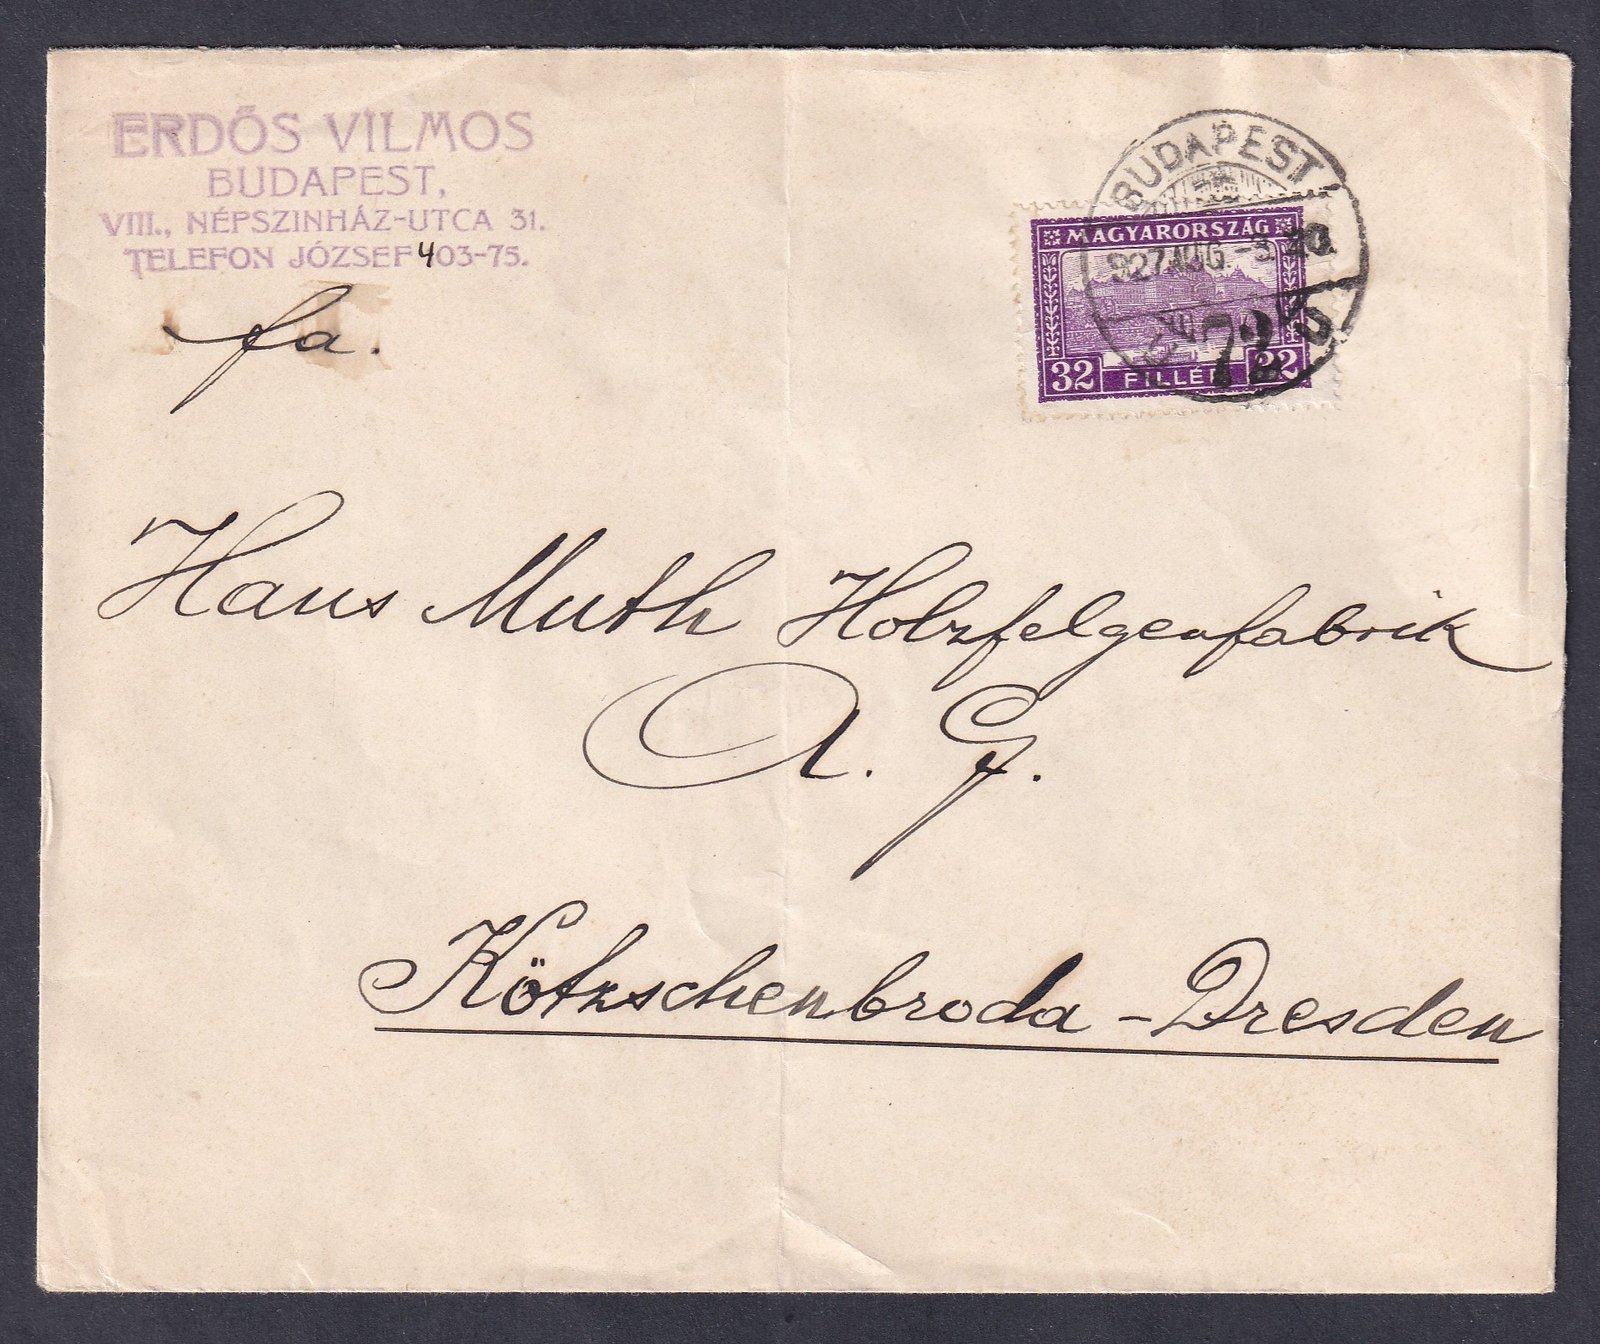 ERDŐS VILMOS
BUDAPEST,
VIII., NÉPSZINHÁZ-UTCA 31.
TELEFON JÓZSEF 403-75.
BUDAPEST
MAGYARORSZÁG
927 AUG. -3.
72
32 FILLÉR 32
fa.
Hans Muth Holzfelgenfabrik
A. G.
Kötzschenbroda - Dresden